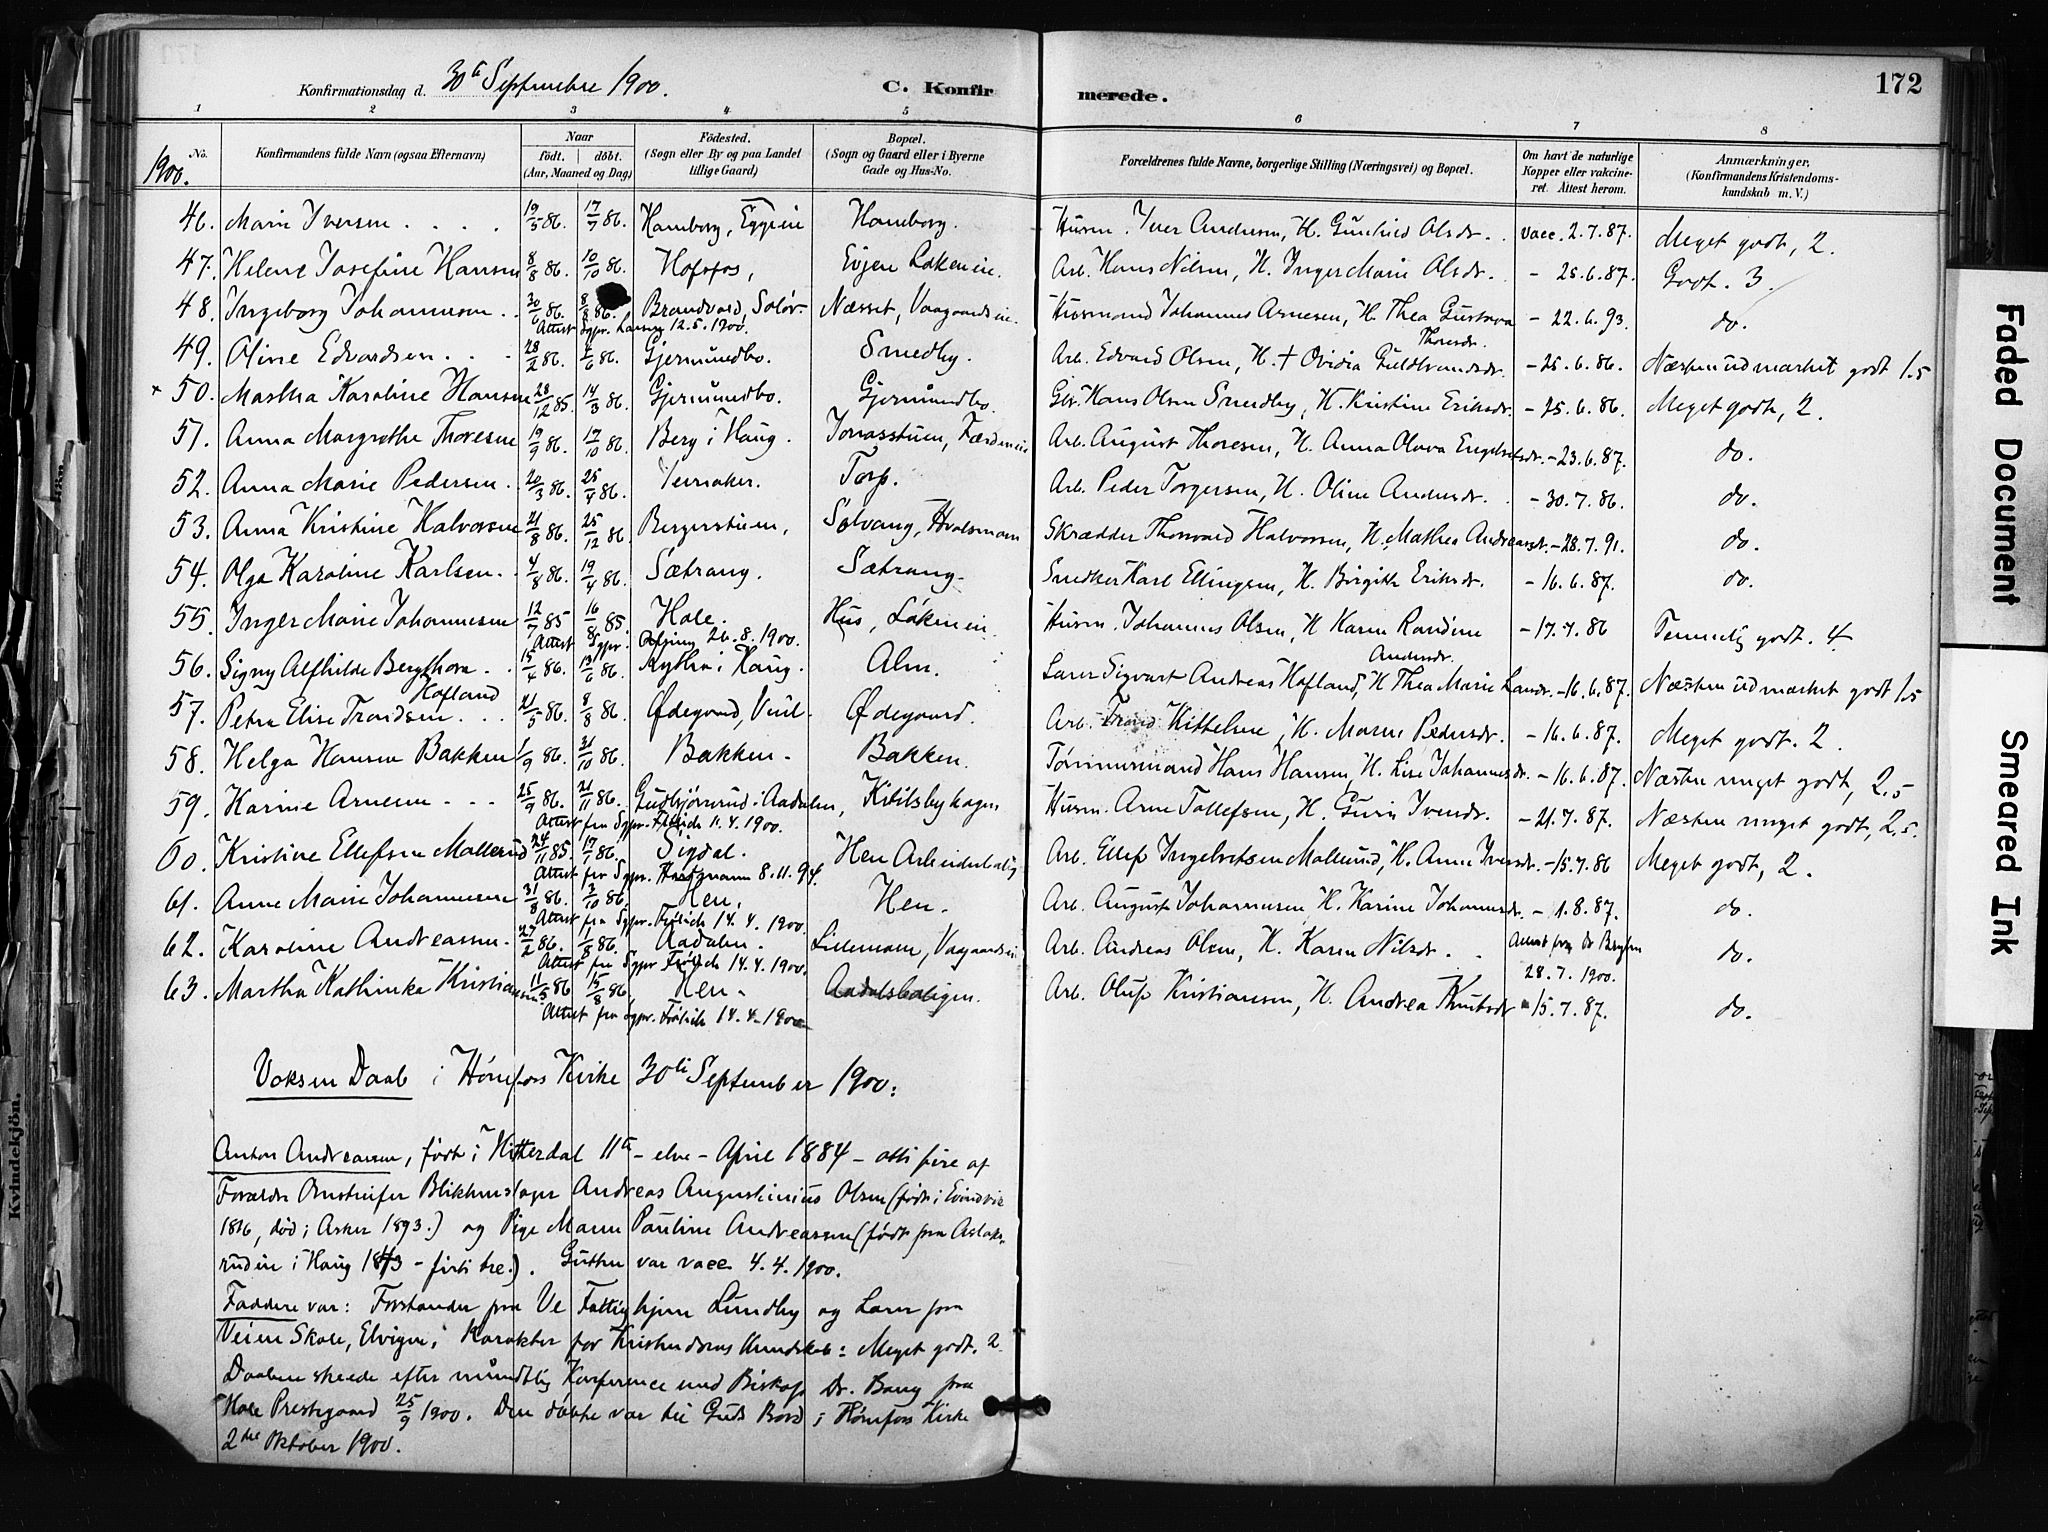 172
Konfirmationsdag d. 30te September 1900.
C. Konfirmerede.
1 2 3 4 5 6 7 8
No. 1900.
Konfirmandens fulde Navn (ogsaa Efternavn)
Naar født. døbt. (Aar, Maaned og Dag)
Fødested. (Sogn eller By og paa Landet tillige Gaard)
Bopæl. (Sogn og Gaard eller i Byerne Gade og Hus-No.
Forældrenes fulde Navne, borgerlige Stilling (Næringsvei) og Bopæl.
Om havt de naturlige Kopper eller vakcineret. Attest herom.
Anmærkninger. (Konfirmandens Kristendomskundskab m. V.)
46. Marie Iversen 19/5 86. 17/7 86. Hamborg, Eggeeie Hamborg. Husm. Iver Andersen, H. Gunhild Olsdr. vacc. 2.7.87. Meget godt, 2.
47. Helene Josefine Hansen 8/8 86. 10/10 86. Hofsfos, Evjen Løkeneie. Arb. Hans Nilsen, H. Inger Marie Olsdr. - 25.6.87. Godt. 3
48. Ingeborg Johannesen 30/6 86. 8/8 86. Brandvold, Solør. Næsset, Vaagaardseie. Husmand Johannes Arnesen, H. Thea Gustava Thoresdr. - 22.6.93. do.
Attest Sgpr. 12.5.1900.
49. Oline Edvardsen 28/2 86. /6 86. Gjermundbo. Smedby. Arb. Edvard Olsen, H. + Ovidia Guldbrandsdr. - 25.6.86. Næsten udmærket godt 1.5
+ 50. Martha Karoline Hansen 28/12 85. 14/3 86. Gjermundbo. Gjermundbo. Gbr. Hans Olsen Smedby, H. Kristine Eriksdr. - 25.6.86. Meget godt, 2.
51. Anna Margrethe Thoresen 19/9 86. 17/10 86. Berg i Haug. Jonasstuen, Arb. August Thoresen, H. Anna Olava Engebretsdr. - 23.6.87. do.
52. Anna Marie Pedersen 20/3 86. 25/4 86. Veiraker. Torp. Arb. Peder Torgersen, H. Oline Andersdr. - 30.7.86. do.
53. Anna Kristine Halvorsen 21/8 86. 25/12 86. Bergerstuen, Solvang, Hvalsmoen Skrædder Thorvald Halvorsen, H. Mathea Andreasdr. - 28.7.91. do.
54. Olga Karoline Karlsen. 4/8 86. 19/4 86. Sætrang. Sætrang. Snedker Karl Ellingsen, H. Birgitte Eriksdr. - 16.6.87. do.
55. Inger Marie Johannesen 12/7 85 16/8 85. Hole. Hus, Løkeneie. Husm. Johannes Olsen, H. Karen Randine Andersdr. - 17.7.86 Temmelig godt. 4
Attest Sgpr. 26.8.1900.
56. Signy Alfhilde Bergthora Hofland 15/4 86. 13/6 86. i Haug. Alm. Lærer Sigvart Andreas Hofland, H. Thea Marie - 16.6.87. Næsten udmærket godt 1.5
57. Petra Elise Trondsen 21/5 86. 8/8 86. Ødegaard, Ødegaard. Arb. Trond Kittelsen, H. Maren Pedersdr. - 16.6.87. Meget godt. 2.
58. Helga Hansen Bakken 1/9 86. 31/10 86. Bakken. Bakken. Tømmermand Hans Hansen, H. Lise Johannesdr. - 16.6.87. Næsten meget godt, 2.5
59. Karine Arnesen 25/9 86. 21/11 86. Gudbjørnrud i Aadalen, Kittilsbyhagen Husm. Arne Tollefsen, H. Guri Iversdr. - 21.7.87. Næsten meget godt, 2.5.
Attest fra Sgpr. Frølich 11.4.1900.
60. Kristine Ellefsen Mollerud 24/11 85. 17/1 86. Sigdal. Hen Arbeiderbolig Arb. Ellef Ingebretsen Mollerud, H. Anne Iversdr. - 15.7.86 Meget godt, 2.
Attest fra Sgpr. 8.11.94.
61. Anne Marie Johannesen 31/8 86. 3/10 86. Hen. Hen. Arb. August Johannesen H. Karine Johannesdr. - 1.8.87. do.
Attest fra Sgpr. Frølich 14.4.1900.
62. Karoline Andreassen. 27/2 86. 1/8 86. Aadalen. Lillemoen, Vaagaardseie Arb. Andreas Olsen, H. Karen Nilsdr. Attest fra Dr. 28.7.1900. do.
Attest fra Sgpr. Frølich 14.4.1900.
63. Martha Kathinka Kristiansen 11/5 86 15/8 86. Hen. Aadalsboligen. Arb. Oluf Kristiansen, H. Andrea Knutsdr. - 15.7.87. do.
Attest fra Sgpr. Frølich 14.4.1900
Voksen Daab i Hønefoss Kirke 30te September 1900:
Anton Andreassen, født i Hitterdal 11te - elve - April 1884 - otti fire af
Forældre Omstreifer Blikkenslager Andreas Augustinius Olsen (født i Eivindvik
1816, død i Asker 1893.) og Pige Maren Pauline Andreassen (født paa Aslaks-
rudeie i Haug 1843 - firti tre.). Gutten var vacc. 4.4.1900.
Faddere var: Forstander paa Ve Fattighjem Lundby og Lærer paa
Veien Skole, Elvigen; Karakter for Kristendoms Kundskab: Meget godt. 2.
Daaben skeede efter mündtlig Konference med Biskop Dr. Bang paa
Hole Prestegaard 25/9 1900. Den døbte var til Guds Bord i Hønefoss Kirke
2den Oktober 1900.
Kvindekjön.
Faded Document
Smeared Ink